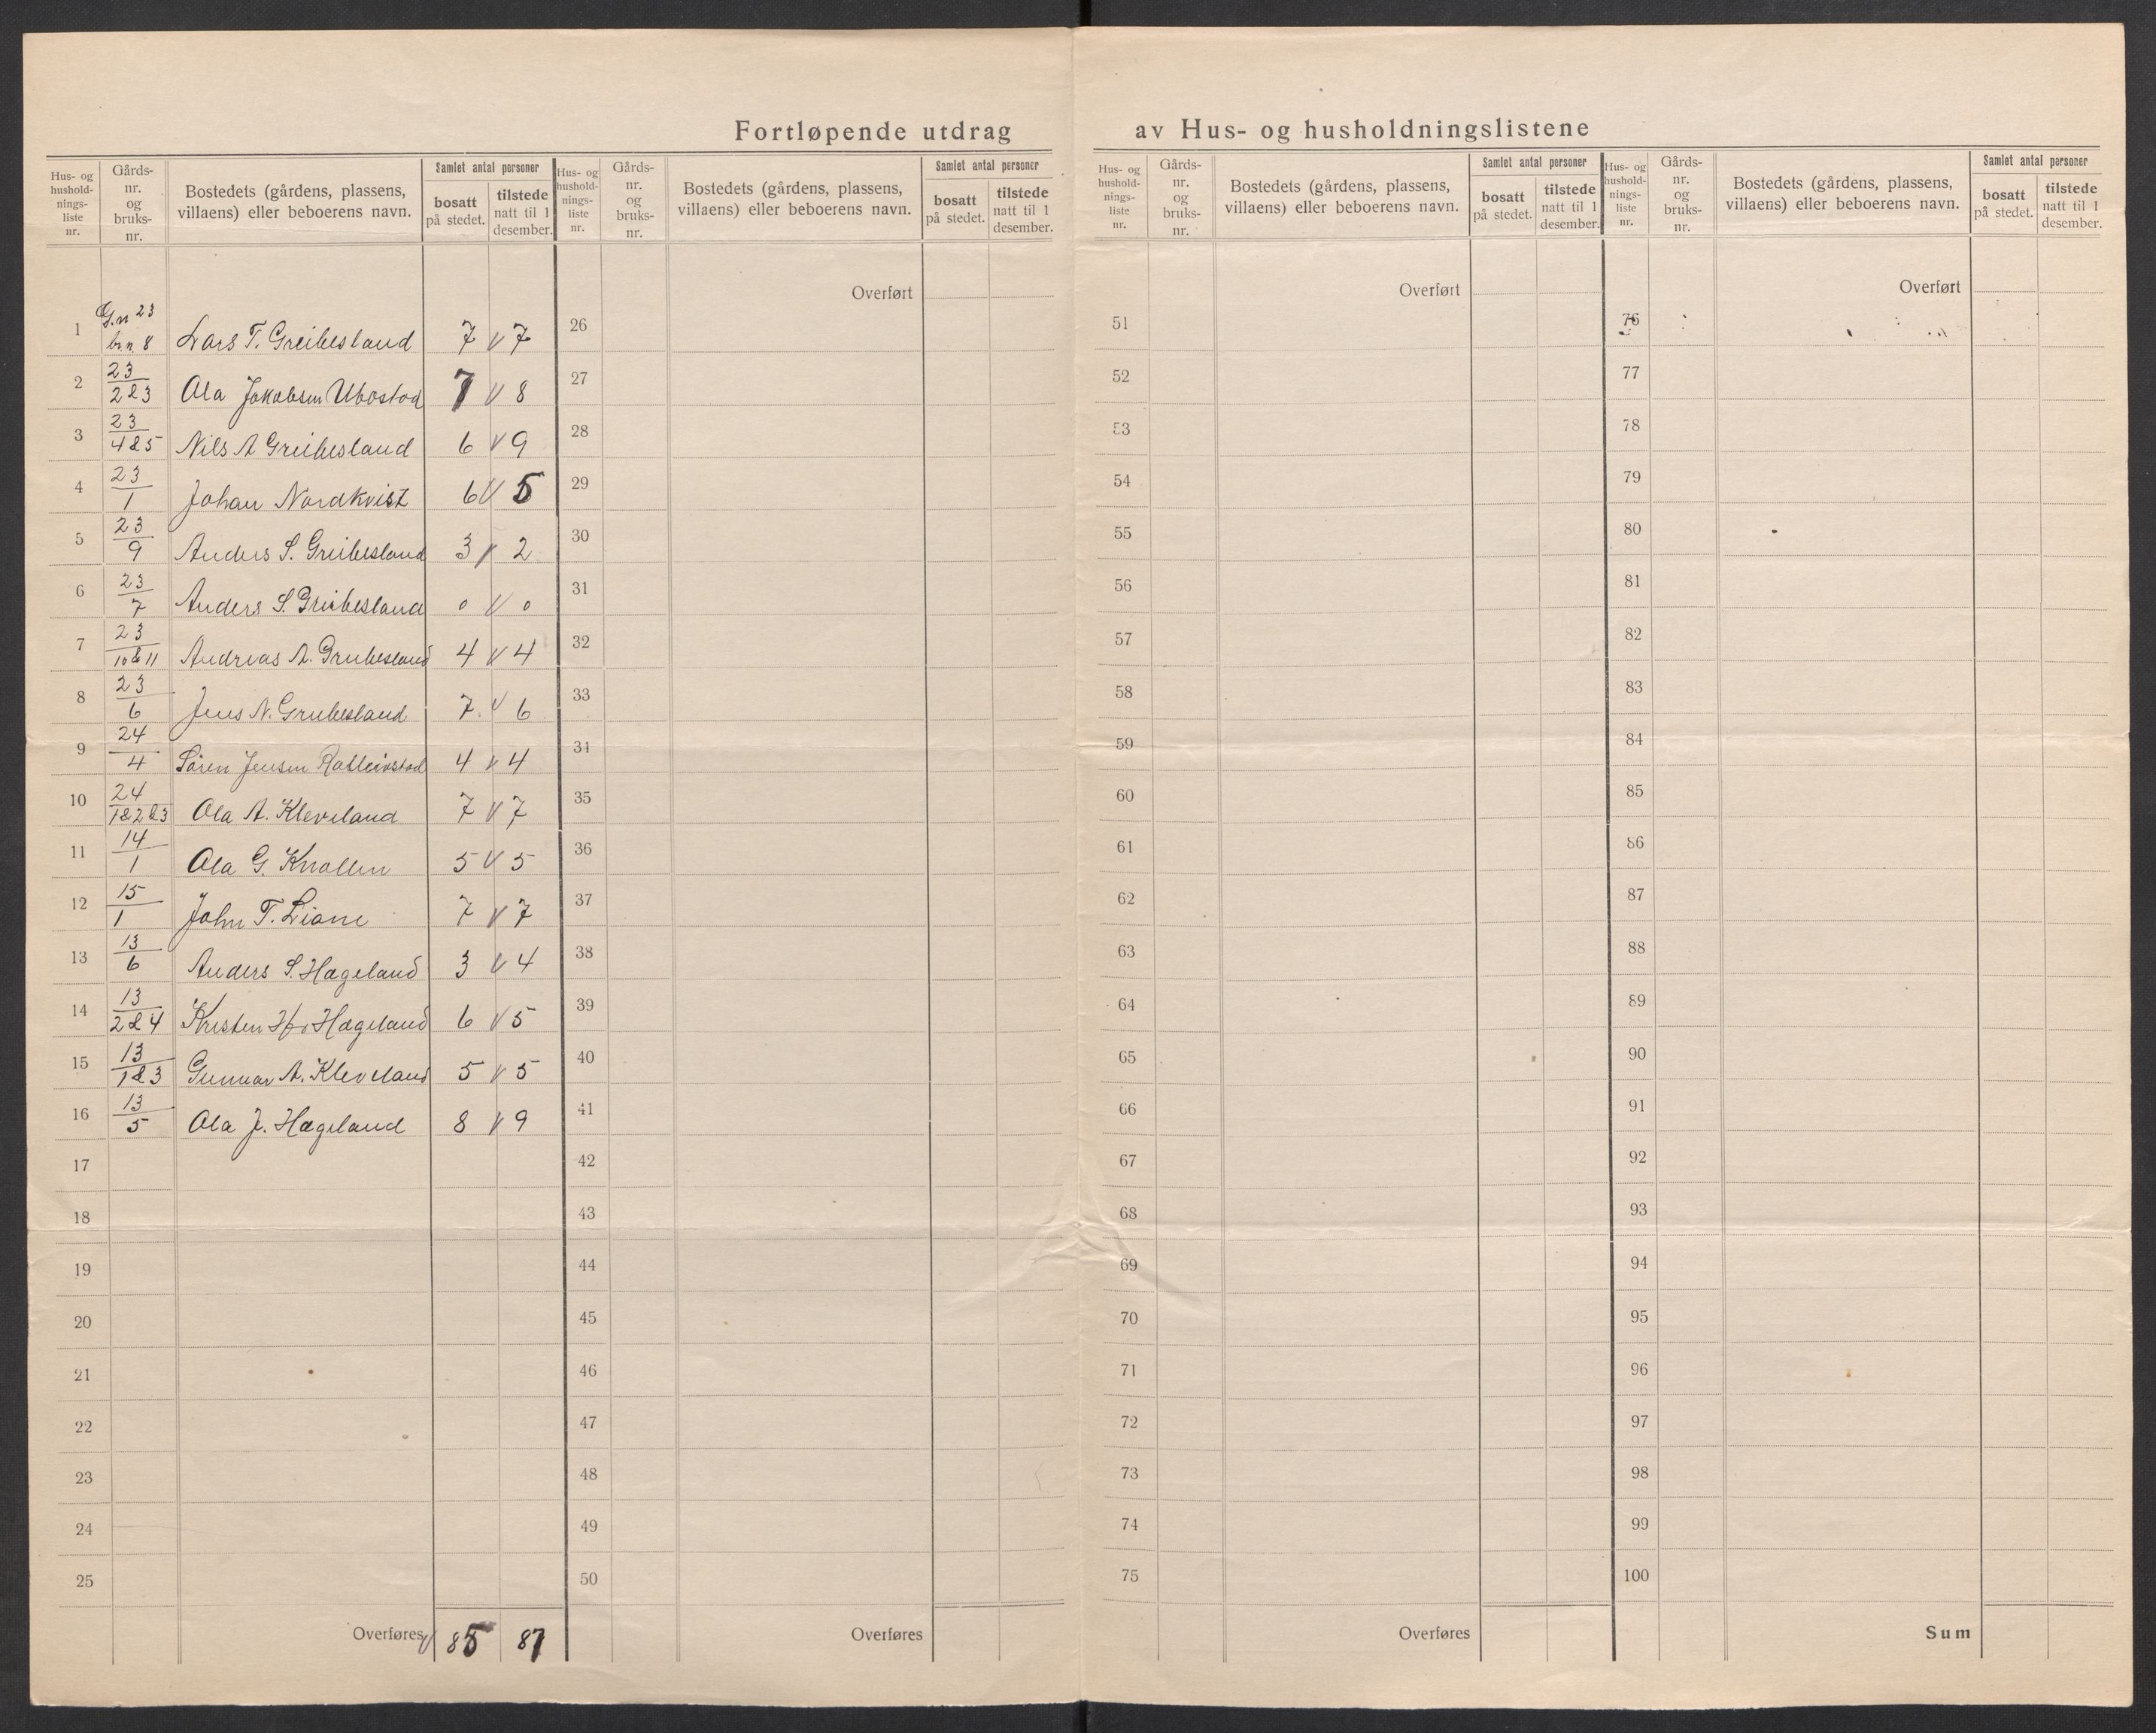 Fortløpende utdrag av Hus- og husholdningslistene
Hus- og hushold-nings-liste nr. Gårds-nr. og bruks-nr. Bostedets (gårdens, plassens, villaens) eller beboerens navn. Samlet antal personer bosatt på stedet. tilstede natt til 1 desember.
1 G.n 23 br.n. 8 Lars T. Greibesland 7 v 7
2 23/2&3 Ola Jakobsen Ubostad 7 v 8
3 23/4&5 Nils A Greibesland 6 v 9
4 23/1 Johan Nordkvist 6 v 5
5 23/9 Anders S. Greibesland 3 v 2
6 23/7 Anders S. Greibesland 0 v 0
7 23/10&11 Andreas A. Greibesland 4 v 4
8 23/6 Jens N. Greibesland 7 v 6
9 24/4 Sören Jensen 4 v 4
10 24/1&2&3 Ola A. Kleveland 7 v 7
11 14/1 Ola G. Knollen 5 v 5
12 15/1 John T. Liane 7 v 7
13 13/6 Anders S. Hægeland 3 v 4
14 13/2&4 Kristen Hægeland 6 v 5
15 13/1&3 Gunnar A. Kleveland 5 v 5
16 13/5 Ola J. Hægeland 8 v 9
17
18
19
20
21
22
23
24
25
Overføres v 85 87
Hus- og hushold-nings-liste nr. Gårds-nr. og bruks-nr. Bostedets (gårdens, plassens, villaens) eller beboerens navn. Samlet antal personer bosatt på stedet. tilstede natt til 1 desember.
Overført
26
27
28
29
30
31
32
33
34
35
36
37
38
39
40
41
42
43
44
45
46
47
48
49
50
Overføres
Hus- og hushold-nings-liste nr. Gårds-nr. og bruks-nr. Bostedets (gårdens, plassens, villaens) eller beboerens navn. Samlet antal personer bosatt på stedet. tilstede natt til 1 desember.
Overført
51
52
53
54
55
56
57
58
59
60
61
62
63
64
65
66
67
68
69
70
71
72
73
74
75
Overføres
Hus- og hushold-nings-liste nr. Gårds-nr. og bruks-nr. Bostedets (gårdens, plassens, villaens) eller beboerens navn. Samlet antal personer bosatt på stedet. tilstede natt til 1 desember.
Overført
76
77
78
79
80
81
82
83
84
85
86
87
88
89
90
91
92
93
94
95
96
97
98
99
100
Sum